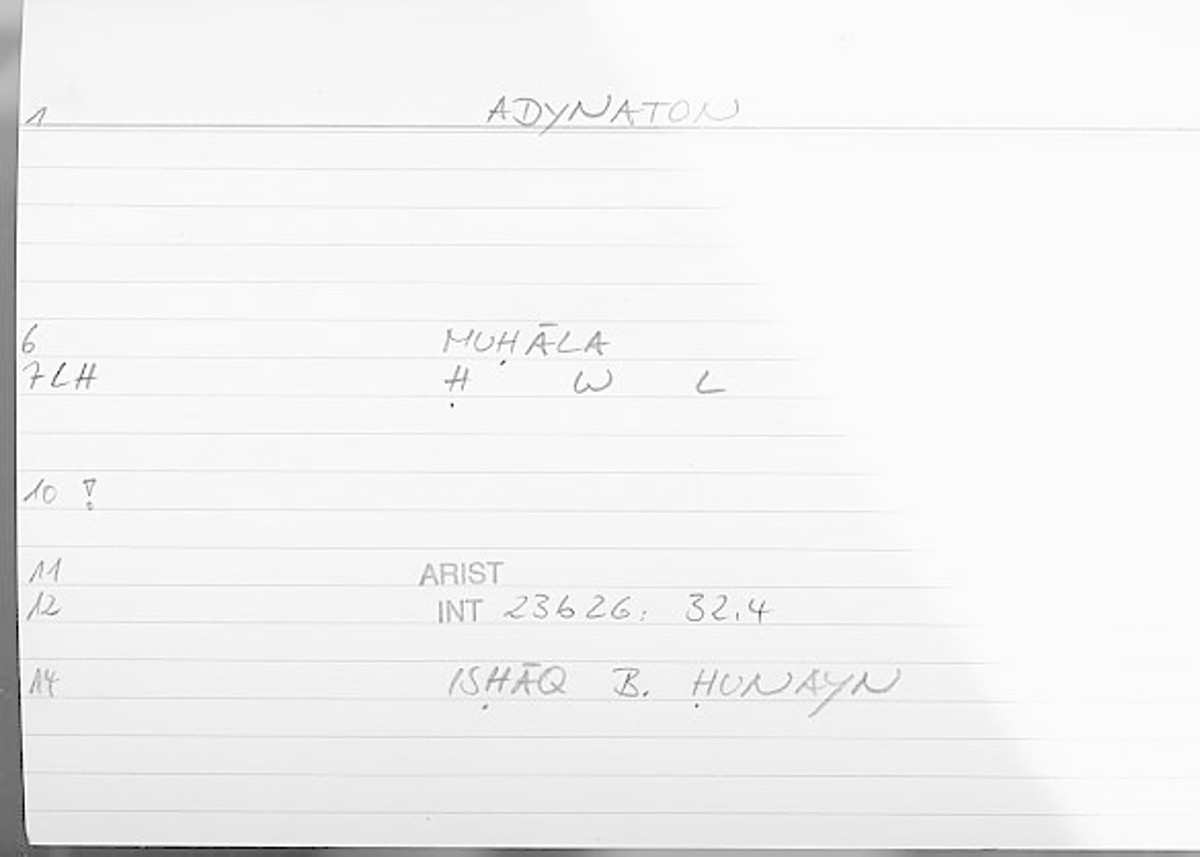 1 ADYNATON
6 MUḤĀLA
7LH Ḥ W L
10 !
11 ARIST
12 INT 23626: 32.4
14 ISḤĀQ B. ḤUNAYN